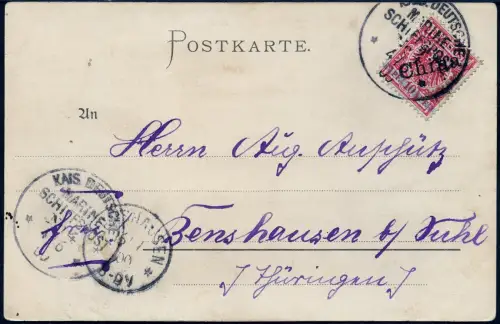 POSTKARTE.
KAIS. DEUTSCHE
MARINE-
SCHIFFSPOST
China
An
Herrn Aug. Anschütz
KAIS. DEUTSCHE
MARINE-
SCHIFFSPOST
Benshausen b/ Suhl
(Thüringen)